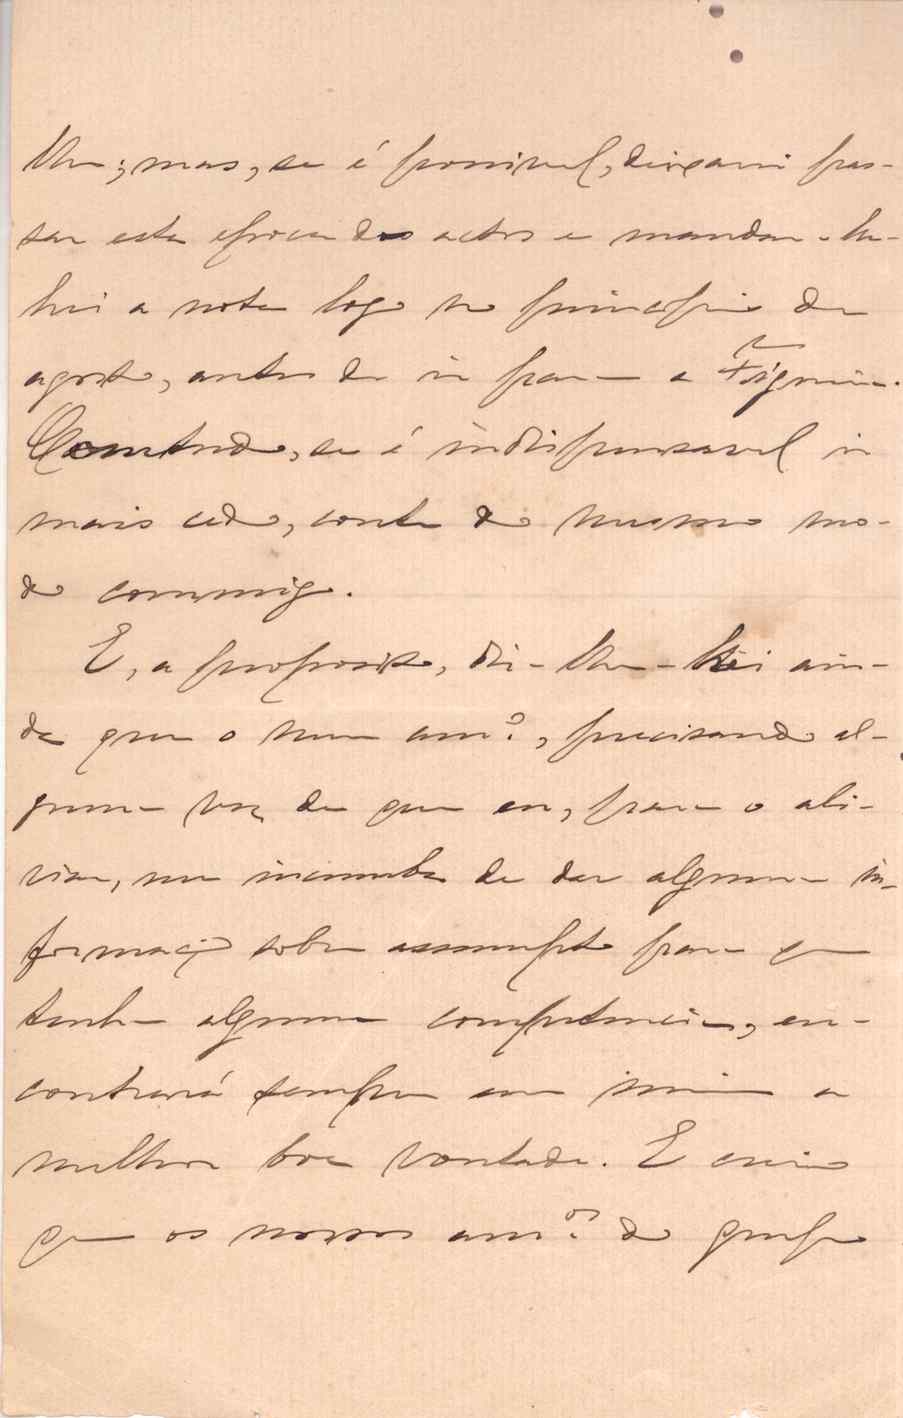 lhe; mas, se é possivel, deixarei pas-
sar esta epoca dos actos e mandar-lhe-
hei a nota logo no principio de
agosto, antes de ir para a Figueira.
Comtudo, se é indispensavel ir
mais cedo, conte do mesmo mo-
do commigo.
E, a proposito, dir-lhe-hei ain-
da que o meu am.º, precisando al-
guma vez de que eu, para o ali-
viar, me incumba de dar alguma in-
formação sobre assumpto para que
tenha alguma competencia, en-
contrará sempre em mim a
melhor boa vontade. E creio
que os nossos am.os do grupo